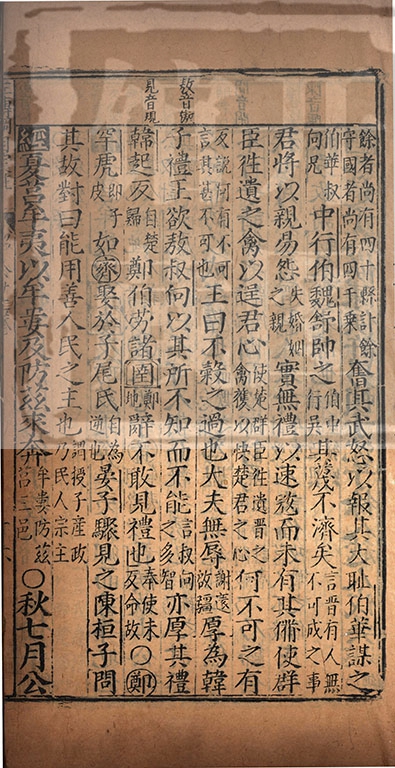 餘者尚有四十縣計餘守國者尚有四千乗奮其武怒以報其大恥伯華謀之
伯華叔向兄中行伯魏舒帥之伯中行吳其蔑不濟矣言晉有人無不可成之事
君將以親易怨失婚姻之親實無禮以速寇而未有其備使群
臣徃遺之禽以逞君心使楚群臣徃遺晉之禽獲以快楚君之心何不可之有
反説何有不可言其甚不可也王曰不榖之過也大夫無辱謝薳啟疆厚為韓
子禮王欲敖叔向以其所不知而不能言叔向之多智亦厚其禮
韓起反自楚歸鄭伯勞諸圉圉鄭地辭不敢見禮也奉使未反命故〇鄭
罕虎即子皮如齊娶於子尾氏自為逆也晏子驟見之陳桓子問
其故對曰能用善人民之主也謂授子産政乃民人宗主
經夏莒牟夷以牟婁及防兹來奔牟婁防兹莒三邑〇秋七月公
敖音傲
見音現